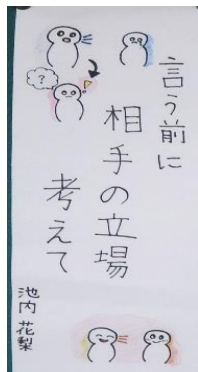 言う前に
相手の立場
考えて
池内 花梨
?